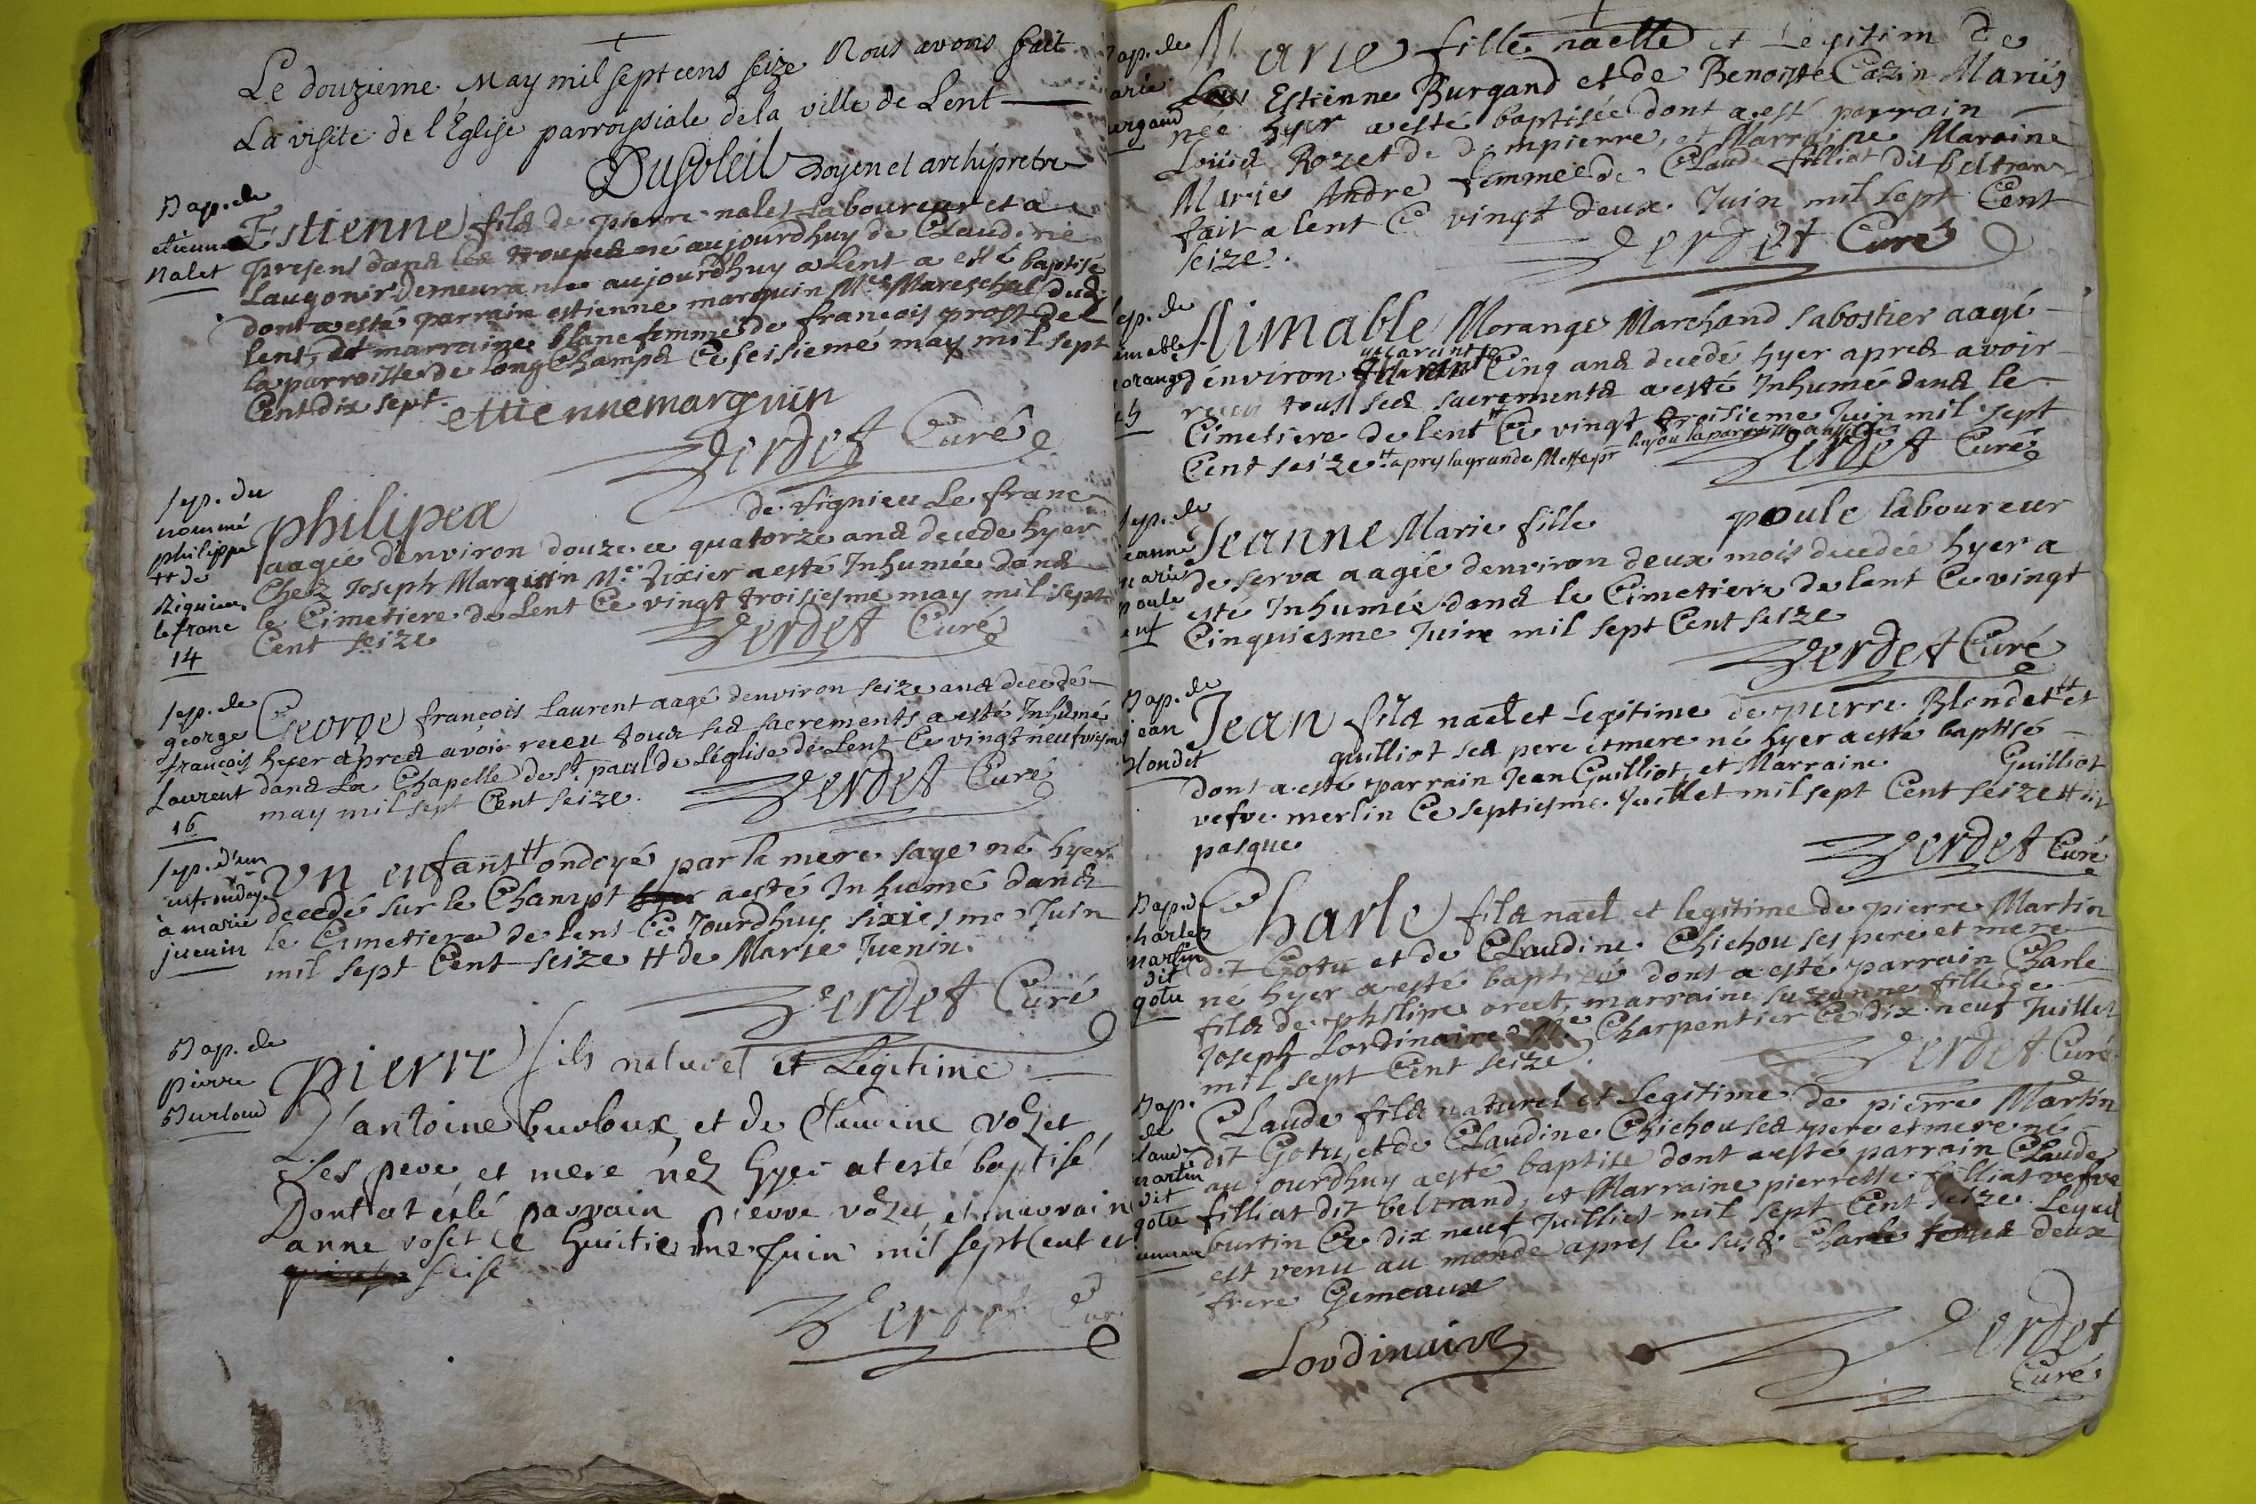 Le douzieme May mil sept cens seize Nous avons fait
La visite de l'Eglise parroissiale de la ville de Lent
Dusoleil Doyen et archipretre
Bap. de
etienne
Nalet
Estienne fils de pierre nalet laboureur et a
present dans les troupes né aujourdhuy de Claudine
Laugonir demeurante aujourdhuy a lent a esté baptisé
dont a esté parrain estienne marguin Me Mareschal dud.
lent, et marraine blanc femme de francois prost de
la parroisse de longchamps Ce seisieme may mil sept
Cent dix sept.
ettienne marguin
Verdet Curé
sep. du
nommé
philippe
tt de
signieu
le franc
14
philipes de signieu Le franc
aagée d'environ douze ce quatorze ans decede hyer
Chez Joseph Marguin Me Tixier a esté Inhumée dans
le Cimetiere de Lent Ce vingt troisiesme may mil sept
Cent seize
Verdet Curé
sep. de
george
françois
Laurent
16
George françois Laurent aagé denviron seize ans decedé
hyer apres avoir receu tous ses sacrements a esté Inhumé
dans La Chapelle de St. paul de L'église de Lent Ce vingt neufviesme
may mil sept Cent seize.
Verdet Curé
sep. d'un
enf. ondoyé
à marie
juenin
Un enfant tt ondoyé par la mere sage né hyer
decedé sur le Champt a esté Inhumé dans
le Cimetiere de lent Ce Jourdhuy sixiesme Juin
mil sept Cent seize tt de Marie Juenin.
Verdet Curé
Bap. de
pierre
Burloud
pierre fils naturel et Légitime
D'antoine burloux, et de Claudine vozet
ses pere, et mere néz hyer at esté baptisé
Dont at ésté parrain pierre vozet, et marraine
anne voset Ce huitiesme Juin mil sept Cent et
seise
Verdet Curé
Bap. de
marie
burgand
Marie fille naelle et Légitim de
Estienne Burgand et de Benoiste Cazin Mariés
née hyer a esté baptisée dont a esté parrain
Louis Rozet de dompierre, et Marraine Maraine
Marie Andre femme de Claude filliat dit beltran
fait a lent Ce vingt deux Juin mil sept Cent
seize.
Verdet Curé
sep. de
aimable
morange
45
Aimable Morange Marchand sabostier aagé
d'énviron quarante Cinq ans decedé hyer apres avoir
receu tous ses sacrements a esté Inhumé dans le
Cimetiere de lent tt Ce vingt troisieme Juin mil sept
Cent seize. tt apres la grande Messe pr
Verdet Curé
sep. de
jeanne
marie
poule
enf
Jeanne Marie fille poule laboureur
de serva aagée denviron deux mois decedée hyer a
esté Inhumée dans le Cimetiere de lent Ce vingt
Cinquiesme Juin mil sept Cent seize
Verdet Curé
Bap. de
jean
blondet
Jean fils nael et Legitime de pierre Blondet tt et
guilliot ses pere et mere né hyer a esté baptisé
dont a esté parrain Jean Guilliot, et Marraine Guilliot
vefve merlin Ce septiesme Juillet mil sept Cent seize tt dit
pasque
Verdet Curé
Bap. de
charles
martin
dit
gotu
Charle fils nael et legitime de pierre Martin
dit Gotu et de Claudine Chichou ses pere et mere
né hyer a esté baptisé dont a esté parrain Charle
fils de philipe orset, marraine suzanne fille de
Joseph Lordinaire Me Charpentier Ce dix neuf Juillet
mil sept Cent seize.
Verdet Curé
Bap.
de
claude
martin
dit
gotu
jumeau
Claude fils naturel et Legitime de pierre Martin
dit Gotu, et de Claudine Chichou ses pere et mere né
aujourdhuy a esté baptise dont a esté parrain Claude
filliat dit beltrand, et Marraine pierrette filliat vefve
burtin Ce dix neuf Juilliet mil sept Cent seize. Lequel
est venu au monde apres le susd. Charle tous deux
frere Gemeaux
Lordinaire
Verdet
Curé